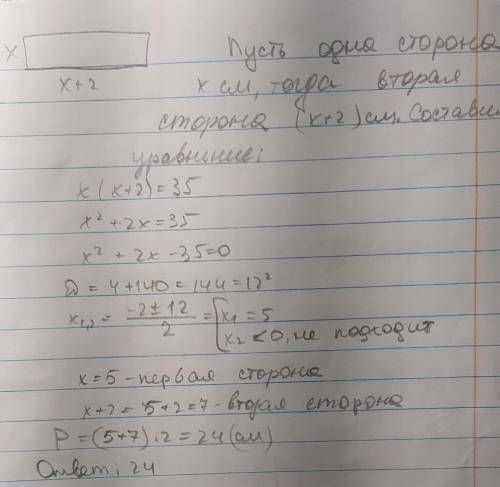 x
x+2
Пусть одна сторона
x см, тогда вторая
сторона (x+2) см. Состави.
уравнение:
x(x+2)=35
x²+2x=35
x²+2x-35=0
D=4+140=144=12²
x₁,₂ = (-2±12)/2 = [x₁=5
x₂<0, не подходит
x=5-первая сторона
x+2=5+2=7-вторая сторона
P=(5+7)·2=24(см)
Ответ: 24